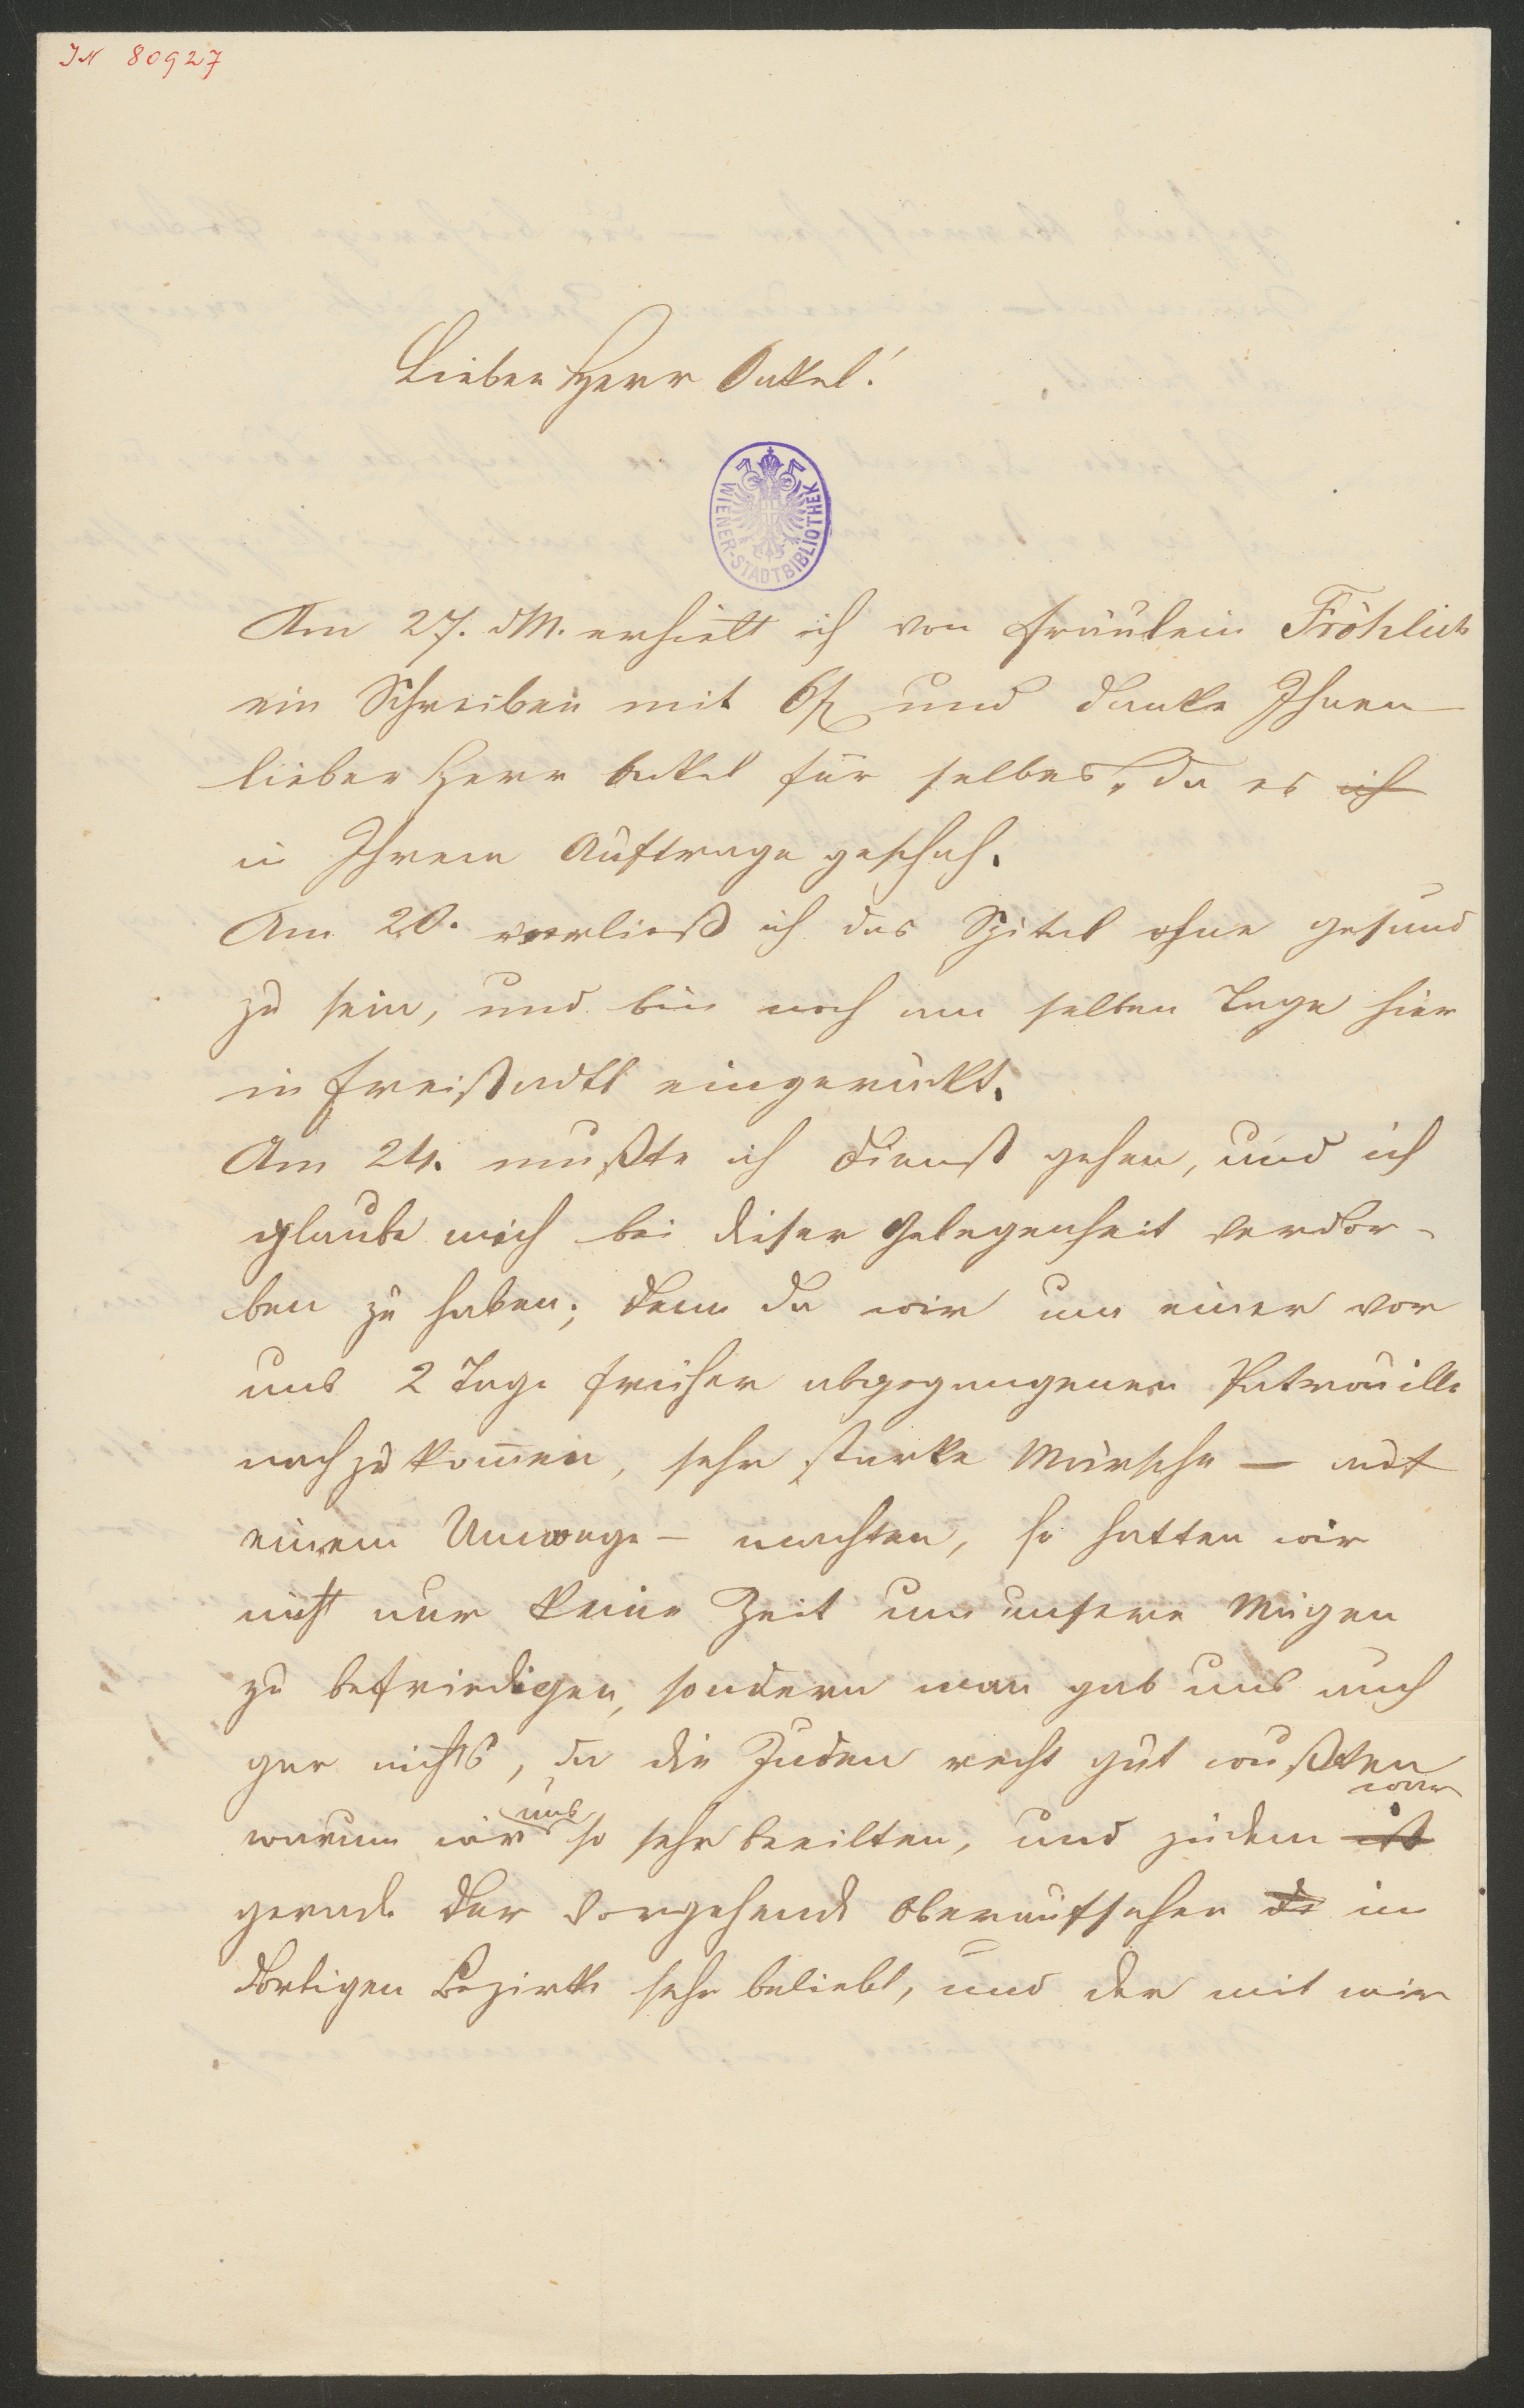 IN 80927
Lieber Herr Onkel!
WIENER-STADTBIBLIOTHEK
Am 27. dM. erhielt ich von Fräulein Fröhlich
ein Schreiben mit 6f und danke Ihnen
lieber Herr Onkel für selbes, da es ich
in Ihrem Auftrage geschah.
Am 20. verließ ich das Spital ohne gesund
zu sein, und bin noch am selben Tage hier
in Freistadtl eingerückt.
Am 24. mußte ich Dienst gehen, und ich
glaube mich bei dieser Gelegenheit verdor-
ben zu haben; denn da wir um einer vor
uns 2 Tage früher abgegangenen Patrouille
nachzukommen, sehr starke Märsche — mit
einem Umwege — machten, so hatten wir
nicht nur keine Zeit um unsere Mägen
zu befriedigen, sondern man gab uns auch
gar nichts, da die Juden recht gut wußten
warum wir uns so sehr beeilten, und zudem ist war
gerade der vorgehende Oberaufseher de im
dortigen Bezirke sehr beliebt, und der mit mir